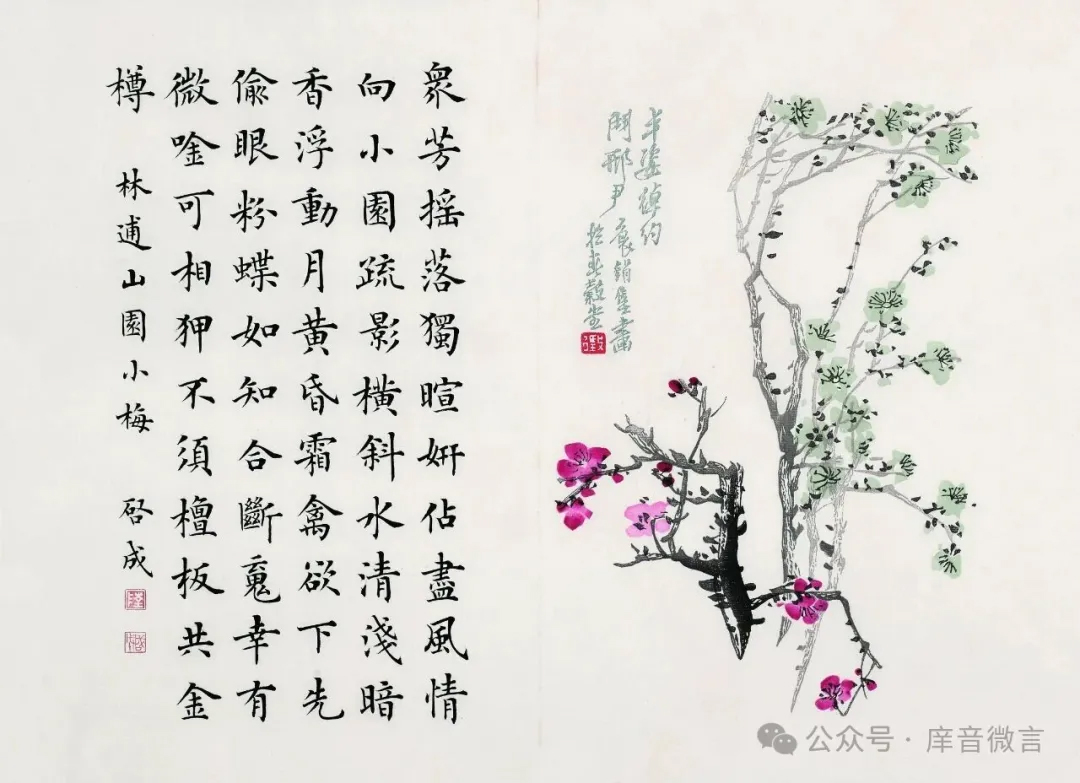 丰姿綽約
鬥邢尹
衆芳摇落獨暄妍佔盡風情
向小園疏影横斜水清淺暗
香浮動月黄昏霜禽欲下先
偷眼粉蝶如知合斷䰟幸有
微唫可相狎不須檀板共金
樽
林逋山園小梅 启成
公众号 · 庠音微言